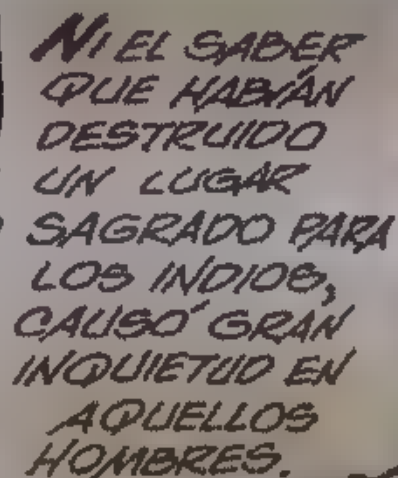 NI EL SABER
QUE HABÍAN
DESTRUIDO
UN LUGAR
SAGRADO PARA
LOS INDIOS,
CAUSÓ GRAN
INQUIETUD EN
AQUELLOS
HOMBRES.